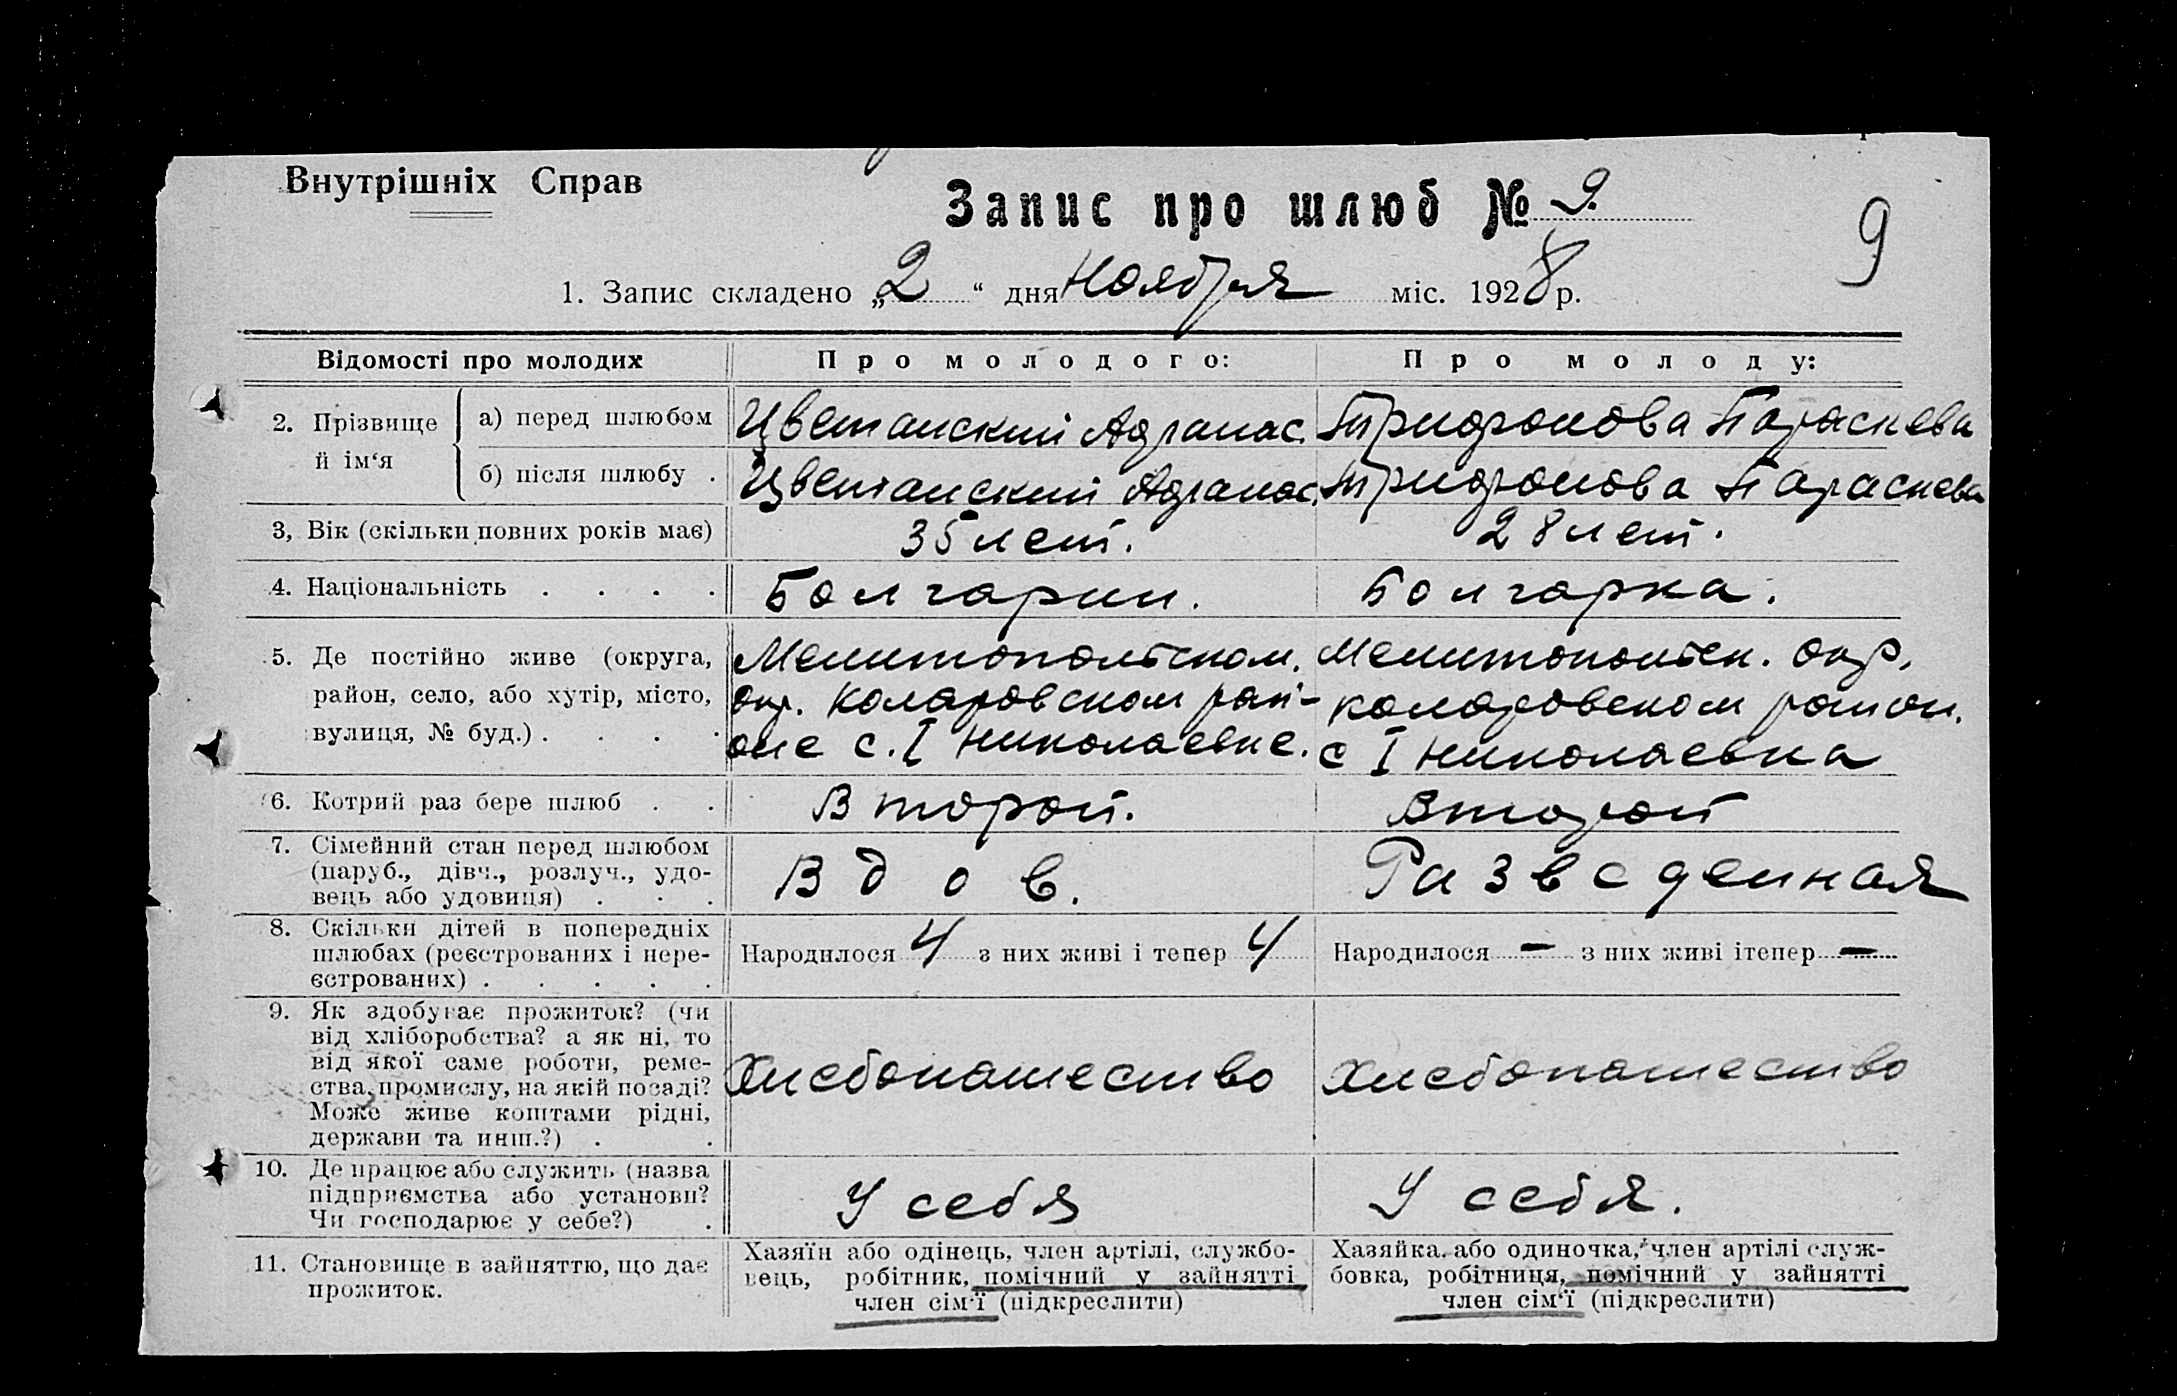 Внутрішніх Справ
Запис про шлюб № 9.
9
1. Запис складено „2“ дня Ноября міс. 1928 р.
Відомості про молодих
Про молодого:
Про молоду:
2. Прізвище й ім‘я
а) перед шлюбом
Цветанский Афанас.
Трифонова Параскева
б) після шлюбу .
Цветанский Афанас.
Трифонова Параскева
3, Вік (скільки повних років має)
35 лет.
28 лет.
4. Національність . . . .
Болгарин.
Болгарка.
5. Де постійно живе (округа,
район, село, або хутір, місто,
вулиця, № буд.) . . . .
Мелитопольском.
окр. Коларовском рай-
оне с. I Николаевке.
Мелитопольск. окр.
коларовском район.
с I Николаевка
6. Котрий раз бере шлюб . .
Второй.
Второй
7. Сімейний стан перед шлюбом
(паруб., дівч., розлуч., удо-
вець або удовиця) . . .
Вдов.
Разведенная
8. Скільки дітей в попередніх
шлюбах (реєстрованих і нере-
єстрованих) . . . . .
Народилося 4 з них живі і тепер 4
Народилося — з них живі ітепер —
9. Як здобуває прожиток? (чи
від хліборобства? а як ні, то
від якої саме роботи, реме-
ства, промислу, на якій посаді?
Може живе коштами рідні,
держави та инш.?) . .
Хлебопашество
Хлебопашество
10. Де працює або служить (назва
підприємства або установи?
Чи господарює у себе?) .
У себя
У себя.
11. Становище в зайняттю, що дає
прожиток.
Хазяїн або одінець, член артілі, службо-
вець, робітник, помічний у зайнятті
член сім‘ї (підкреслити)
Хазяйка або одиночка, член артілі служ-
бовка, робітниця, помічний у зайнятті
член сім‘ї (підкреслити)